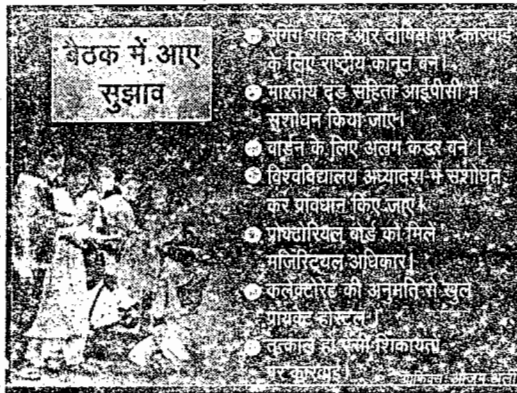 बैठक में आए
सुझाव
रैगिंग रोकने और दोषियों पर कार्रवाई
के लिए राष्ट्रीय कानून बने।
भारतीय दंड संहिता आईपीसी में
संशोधन किया जाए।
वार्डन के लिए अलग कैडर बने।
विश्वविद्यालय अध्यादेश में संशोधन
कर प्रावधान किए जाए।
प्रोक्टोरियल बोर्ड को मिले
मजिस्ट्रियल अधिकार।
कलेक्टोरेट की अनुमति से खुलें
प्रायवेट होस्टल।
तत्काल हो ऐसी शिकायतों
पर कार्रवाई।
ग्राफिक्स: आजम अली